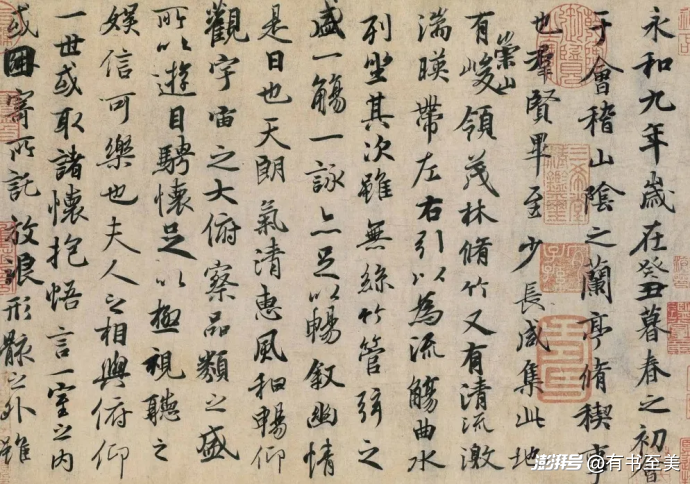 永和九年歲在癸丑暮春之初會
于會稽山陰之蘭亭脩稧事
也羣賢畢至少長咸集此地
有崇山峻領茂林脩竹又有清流激
湍暎帶左右引以為流觴曲水
列坐其次雖無絲竹管弦之
盛一觴一詠亦足以暢叙幽情
是日也天朗氣清惠風和暢仰
觀宇宙之大俯察品類之盛
所以遊目騁懷足以極視聽之
娛信可樂也夫人之相與俯仰
一世或取諸懷抱悟言一室之內
或因寄所託放浪形骸之外雖
澎湃号@有书至美